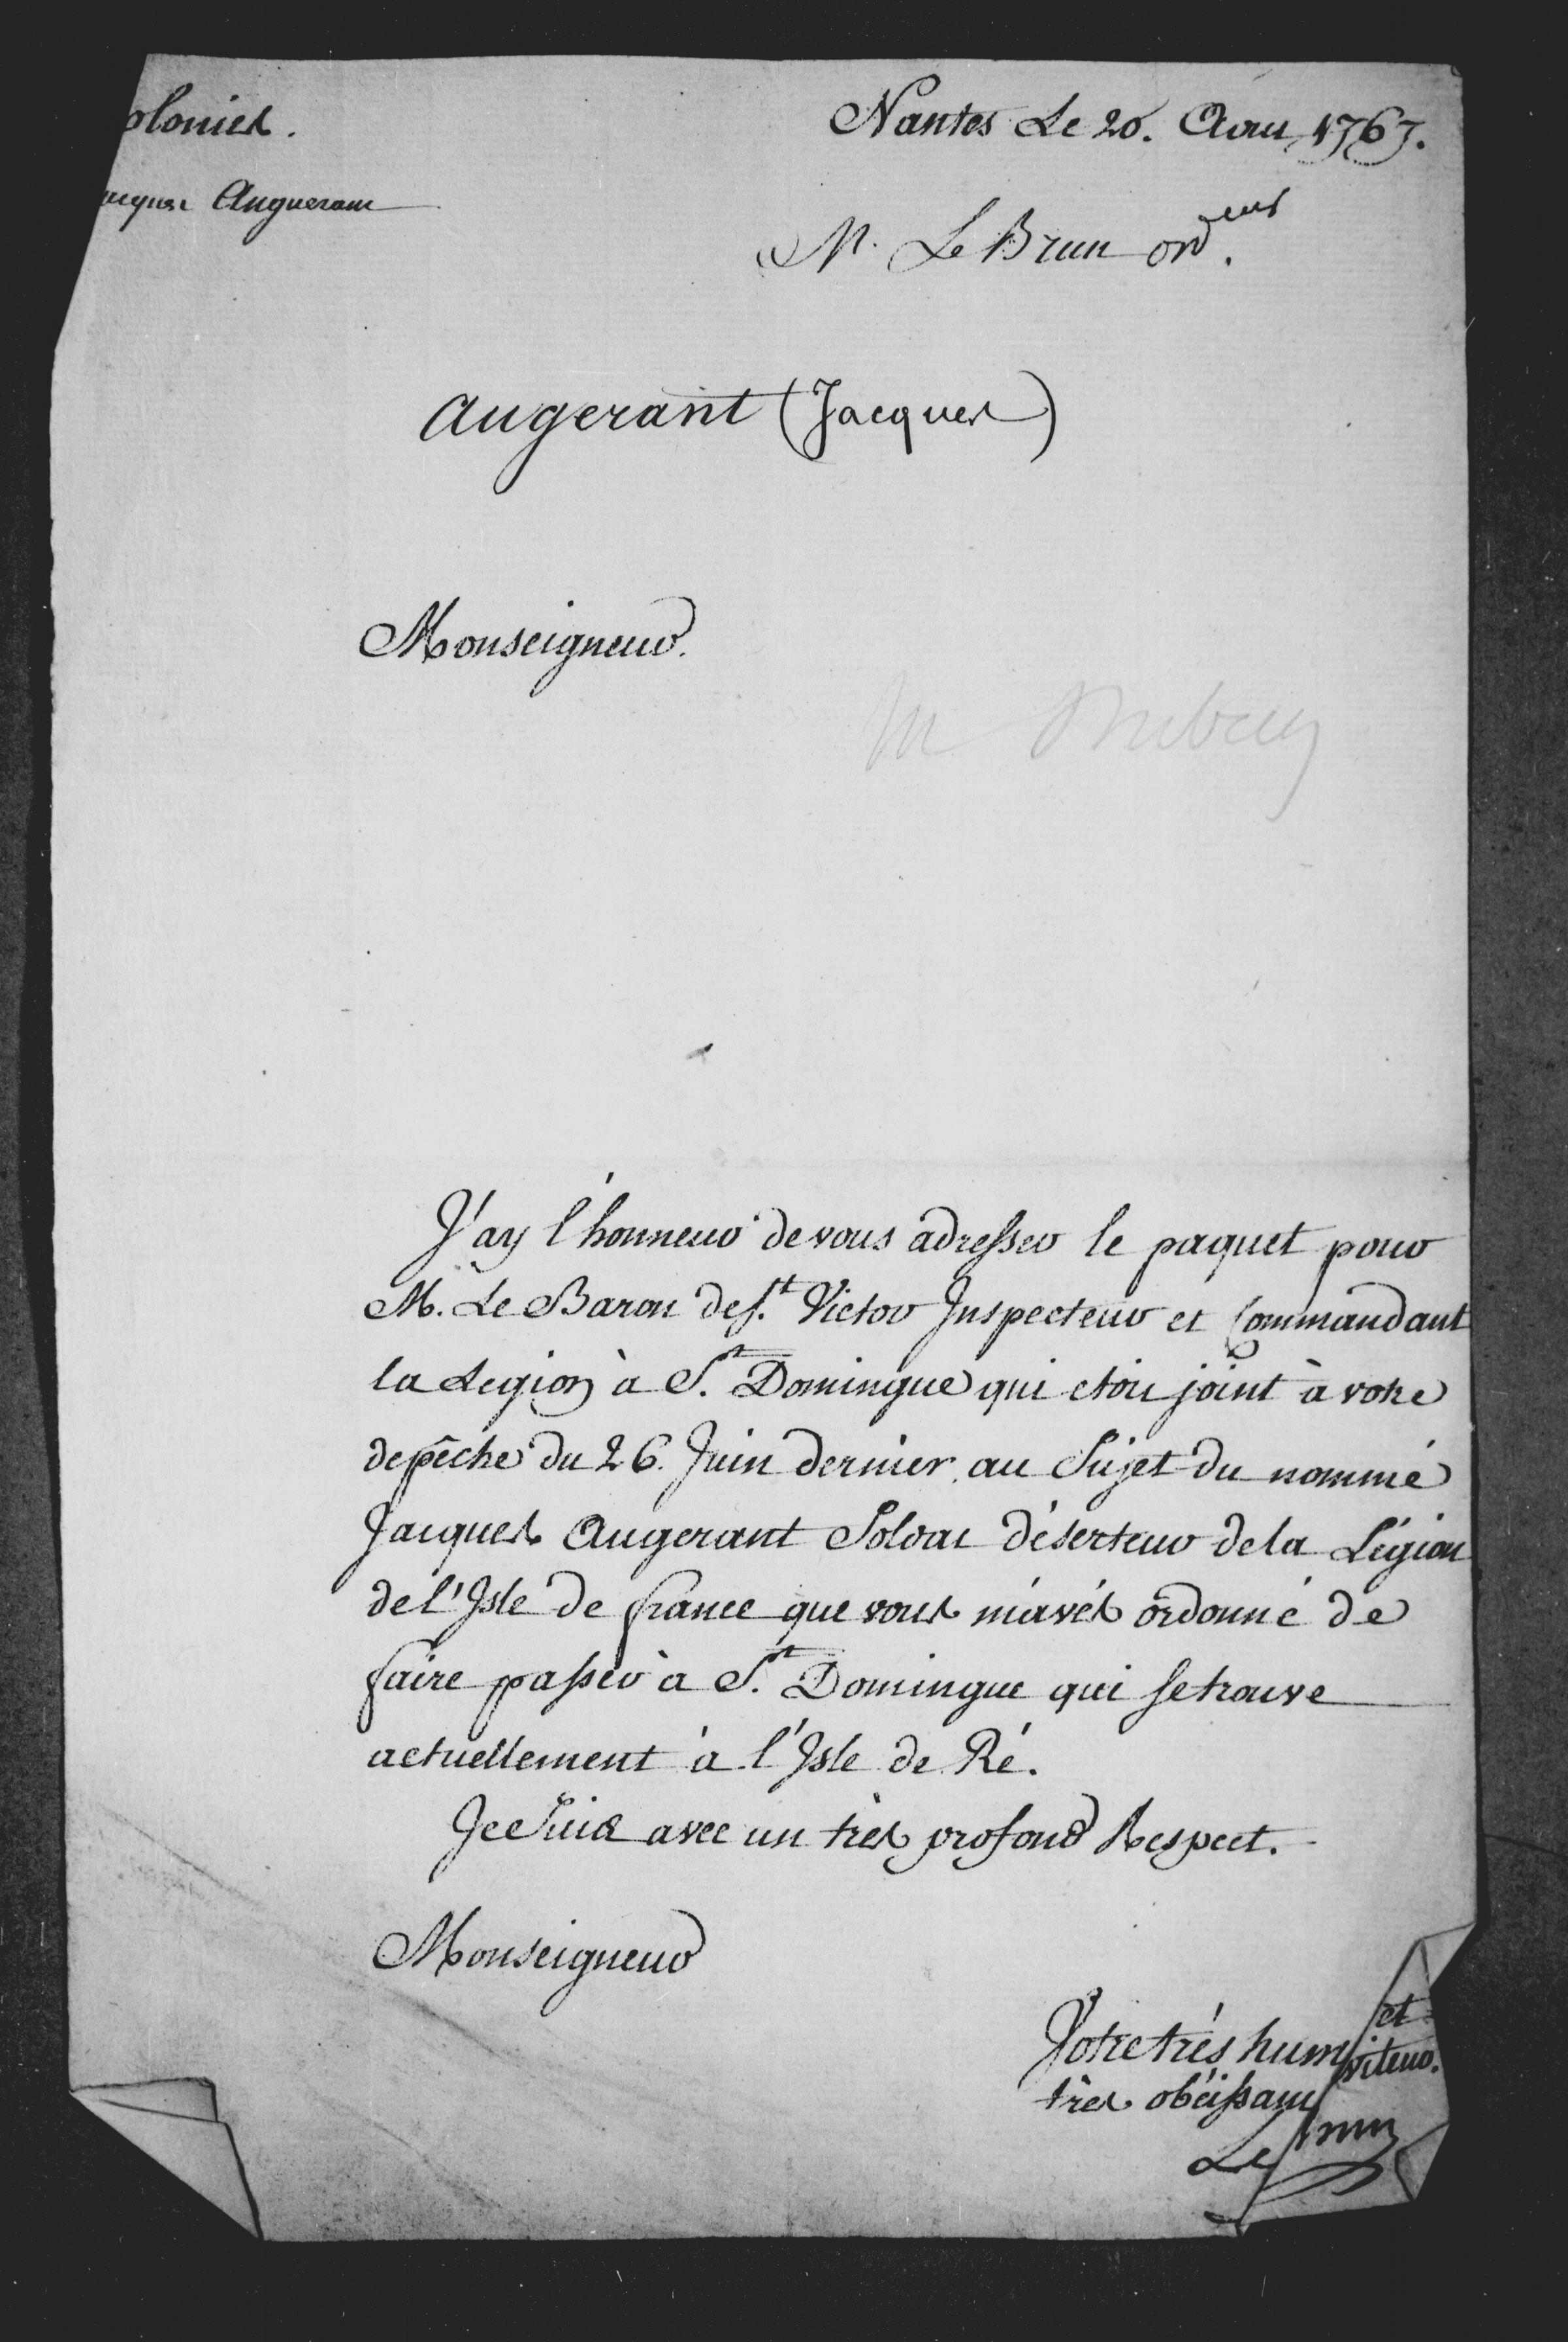 olonies.
Nantes Le 20. Aout 1767.
acques Anguerant
M. Le Brun ord.eur
augerant (Jacques)
Monseigneur.
M
J'ay l'honneur de vous adresser le paquet pour
M. Le Baron de st. Victor Inspecteur et Commandant
la Legion à St. Domingue qui etoit joint à votre
depêche du 26. Juin dernier au Sujet du nommé
Jacques Augerant Soldat déserteur de la Légion
de l'Isle de france que vous m'avés ordonné de
faire passer à St. Domingue qui se trouve
actuellement à l'Isle de Ré.
Je Suis avec un très profond Respect.
Monseigneur
Votre très hum et
très obéissant viteur.
Le run